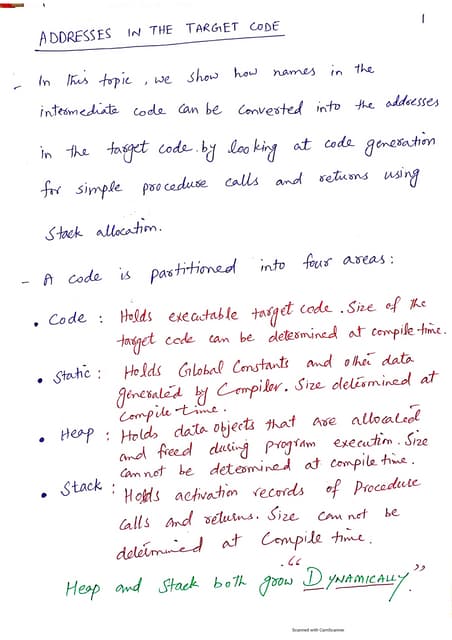 1
ADDRESSES IN THE TARGET CODE
- In this topic, we show how names in the
intermediate code can be converted into the addresses
in the target code by looking at code generation
for simple procedure calls and returns using
Stack allocation.
- A code is partitioned into four areas:
• Code : Holds executable target code. Size of the
target code can be determined at compile time.
• Static : Holds Global Constants and other data
generated by Compiler. Size determined at
Compile time.
• Heap : Holds data objects that are allocated
and freed during program execution. Size
cannot be determined at compile time.
• Stack : Holds activation records of Procedure
calls and returns. Size can not be
determined at Compile time.
Heap and Stack both grow "DYNAMICALLY."
Scanned with CamScanner